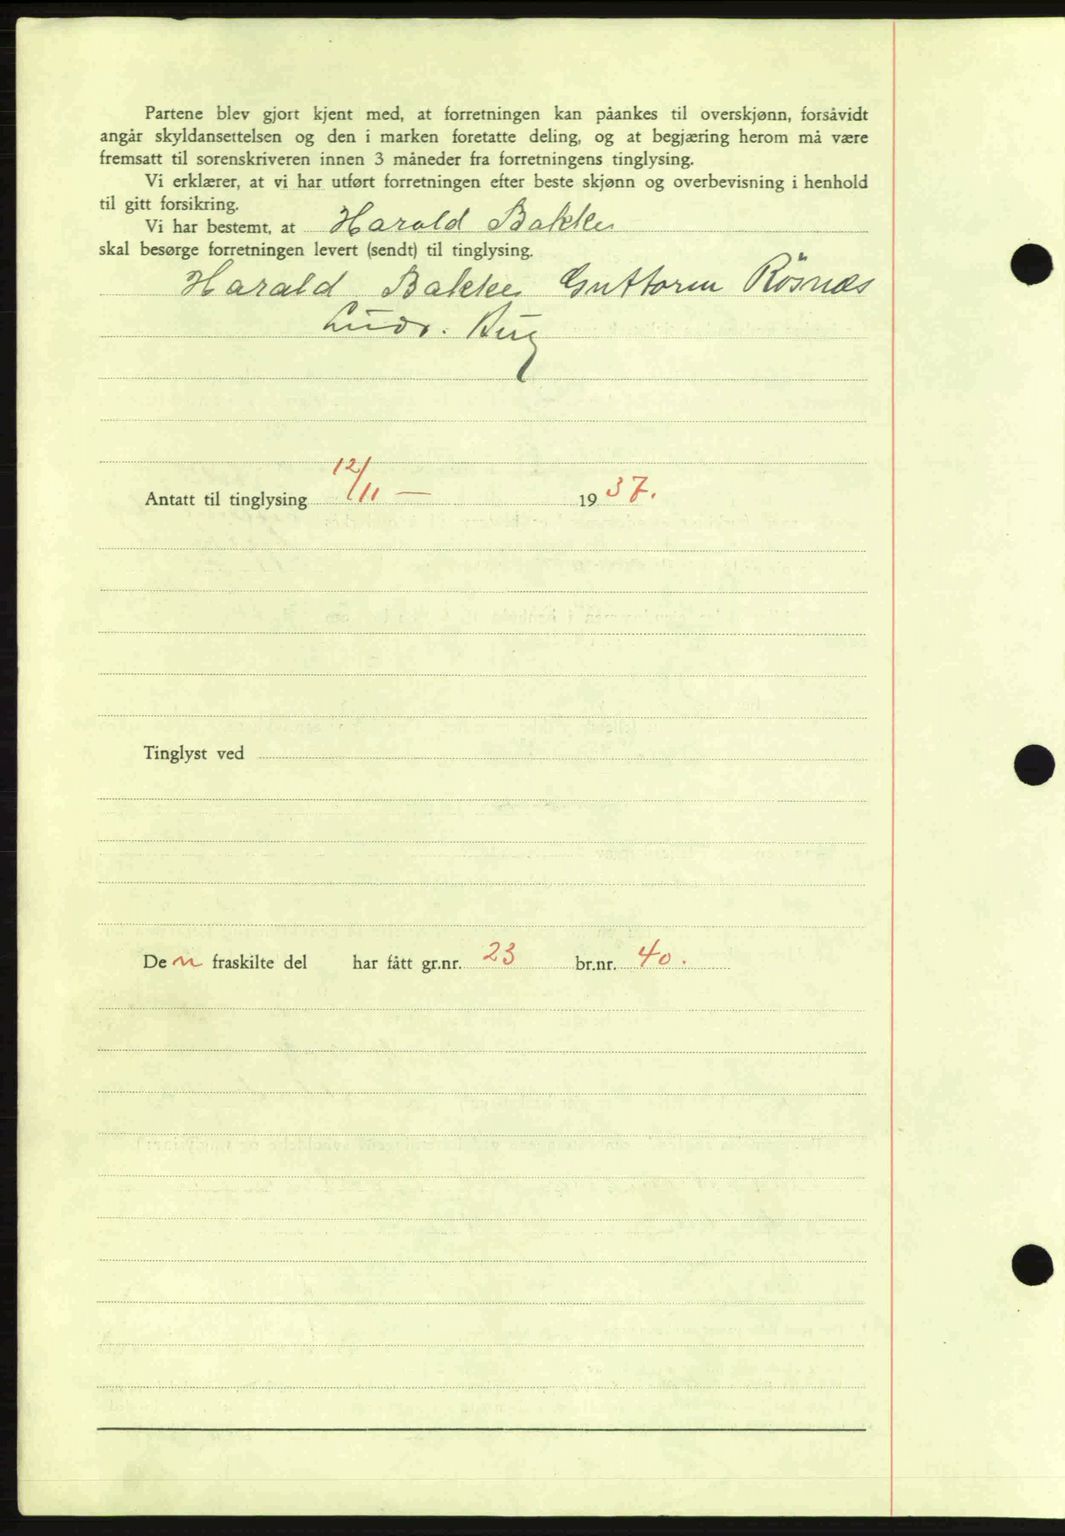 Partene blev gjort kjent med, at forretningen kan påankes til overskjønn, forsåvidt
angår skyldansettelsen og den i marken foretatte deling, og at begjæring herom må være
fremsatt til sorenskriveren innen 3 måneder fra forretningens tinglysing.
Vi erklærer, at vi har utført forretningen efter beste skjønn og overbevisning i henhold
til gitt forsikring.
Vi har bestemt, at Harald Bakke
skal besørge forretningen levert (sendt) til tinglysing.
Harald Bakke Guttorm Rösnæs
Ludv.
Antatt til tinglysing 12/11 — 1937.
Tinglyst ved
Den fraskilte del har fått gr.nr. 23 br.nr. 40.